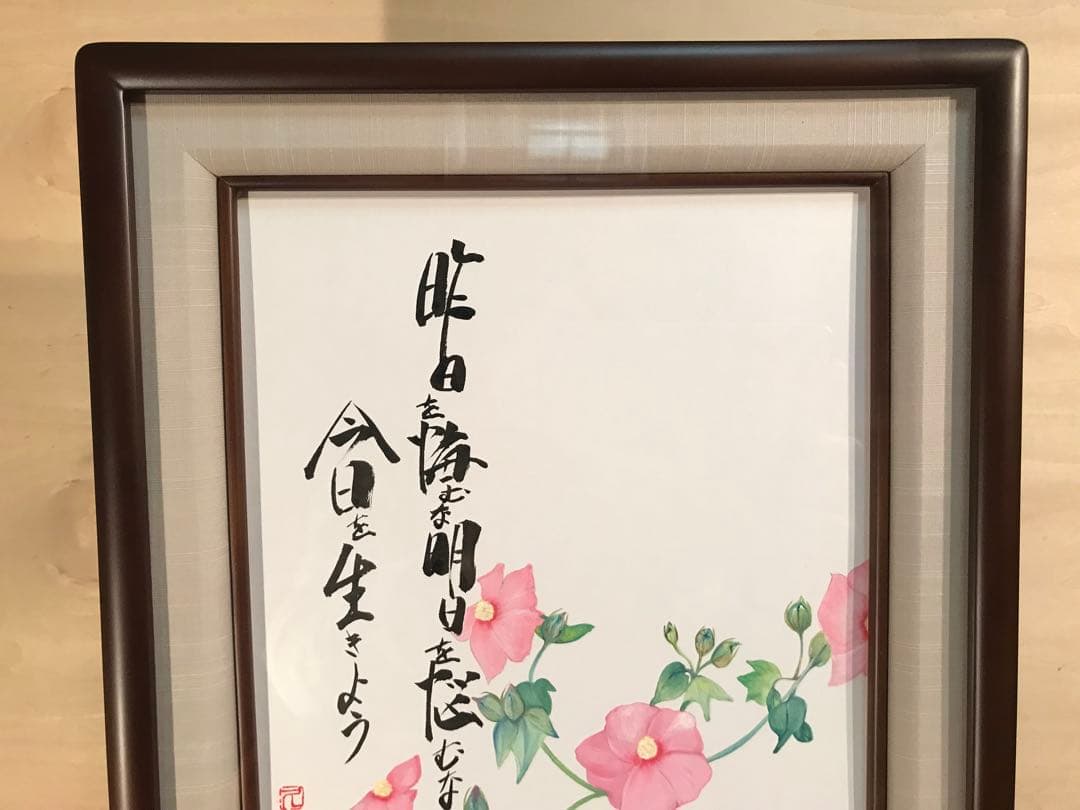 昨日を悔むな明日を悩むな
今日を生きよう
元